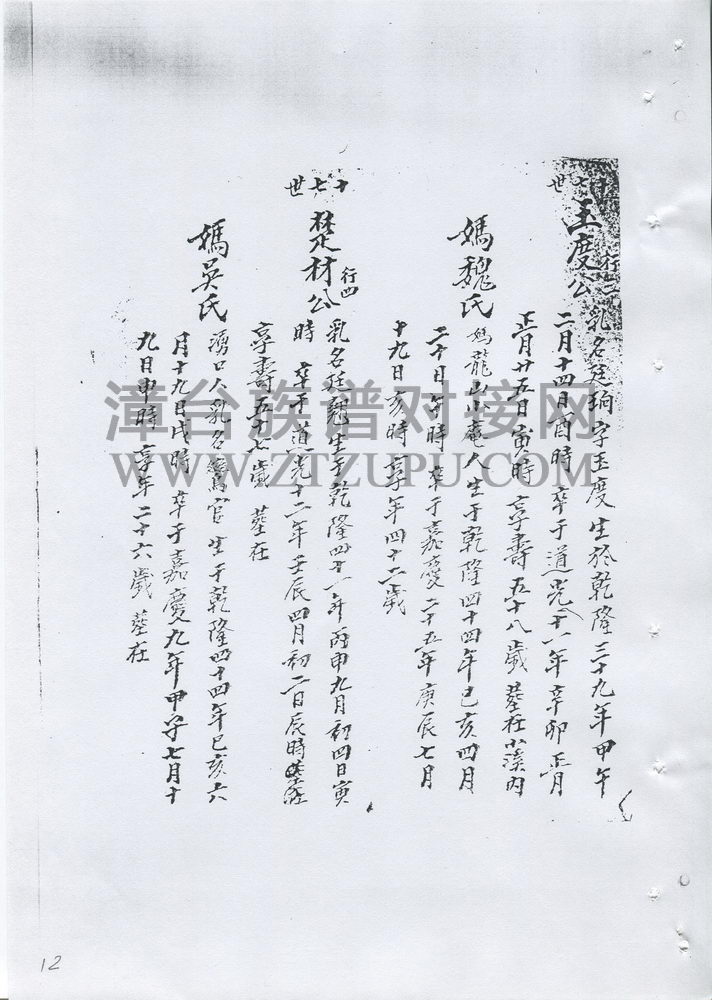 十七世
玉度公
行三
乳名廷珦字玉度生於乾隆三十九年甲午
二月十四日酉時卒于道光十一年辛卯正月
正月廿五日寅時享壽五十八歲塟在小溪內
媽魏氏
媽龍山小庵人生于乾隆四十四年己亥四月
二十日午時卒于嘉慶二十五年庚辰七月
十九日亥時享年四十二歲
十七世
楚材公
行四
乳名廷魁生于乾隆四十一年丙申九月初四日寅
時卒于道光十二年壬辰四月初二日辰時
享壽五十七歲塟在
媽吳氏
湧口人乳名官生于乾隆四十四年己亥六
月十九日戌時卒于嘉慶九年甲子七月十
九日申時享年二十六歲塟在
漳台族谱对接网
WWW.ZTZUPU.COM
12